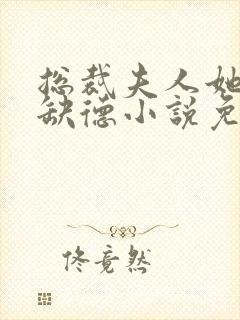 总裁夫人她
缺德小说免
佟竟然